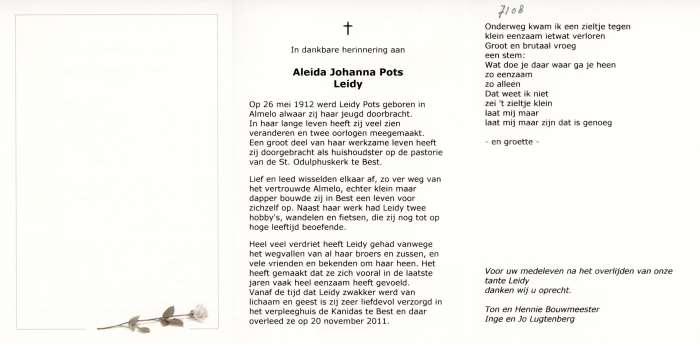 In dankbare herinnering aan
Aleida Johanna Pots
Leidy
Op 26 mei 1912 werd Leidy Pots geboren in
Almelo alwaar zij haar jeugd doorbracht.
In haar lange leven heeft zij veel zien
veranderen en twee oorlogen meegemaakt.
Een groot deel van haar werkzame leven heeft
zij doorgebracht als huishoudster op de pastorie
van de St. Odulphuskerk te Best.
Lief en leed wisselden elkaar af, zo ver weg van
het vertrouwde Almelo, echter klein maar
dapper bouwde zij in Best een leven voor
zichzelf op. Naast haar werk had Leidy twee
hobby's, wandelen en fietsen, die zij nog tot op
hoge leeftijd beoefende.
Heel veel verdriet heeft Leidy gehad vanwege
het wegvallen van al haar broers en zussen, en
vele vrienden en bekenden om haar heen. Het
heeft gemaakt dat ze zich vooral in de laatste
jaren vaak heel eenzaam heeft gevoeld.
Vanaf de tijd dat Leidy zwakker werd van
lichaam en geest is zij zeer liefdevol verzorgd in
het verpleeghuis de Kanidas te Best en daar
overleed ze op 20 november 2011.
7108
Onderweg kwam ik een zieltje tegen
klein eenzaam ietwat verloren
Groot en brutaal vroeg
een stem:
Wat doe je daar waar ga je heen
zo eenzaam
zo alleen
Dat weet ik niet
zei 't zieltje klein
laat mij maar
laat mij maar zijn dat is genoeg
- en groette -
Voor uw medeleven na het overlijden van onze
tante Leidy
danken wij u oprecht.
Ton en Hennie Bouwmeester
Inge en Jo Lugtenberg